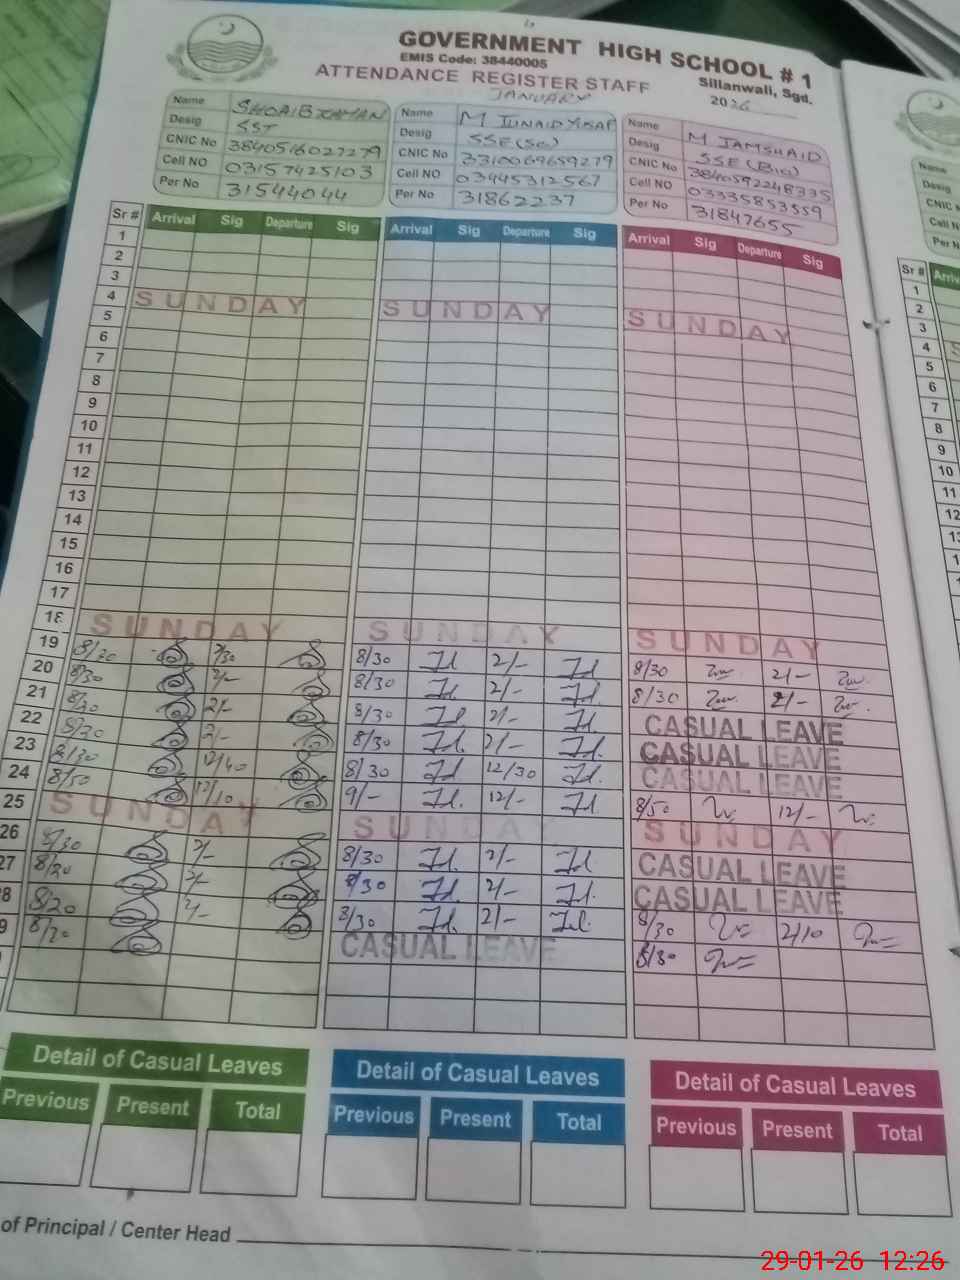 GOVERNMENT HIGH SCHOOL # 1
EMIS Code: 38440005
Sillanwali, Sgd.
ATTENDANCE REGISTER STAFF
JANUARY 2026
Name SHOAIB
Desig SST
CNIC No 3840516027279
Cell NO 03157425103
Per No 31544044
Name M JUNAID YUSAF
Desig SSE(Sc)
CNIC No 3310069659279
Cell NO 03445312567
Per No 31862237
Name M JAMSHAID
Desig SSE(Bio)
CNIC No 3840592248335
Cell NO 03335853559
Per No 31847655
Sr # Arrival Sig Departure Sig Arrival Sig Departure Sig Arrival Sig Departure Sig
1
2
3
4 SUNDAY SUNDAY SUNDAY
5
6
7
8
9
10
11
12
13
14
15
16
17
18 SUNDAY SUNDAY SUNDAY
19 8/30 2/30 8/30 2/- 8/30 2/-
20 8/30 2/- 8/30 2/- 8/30 2/-
21 8/30 2/- 8/30 2/- CASUAL LEAVE
22 8/30 2/- 8/30 2/- CASUAL LEAVE
23 8/30 12/40 8/30 12/30 CASUAL LEAVE
24 8/50 12/10 9/- 12/- 8/50 12/-
25 SUNDAY SUNDAY SUNDAY
26 8/30 2/- 8/30 2/- CASUAL LEAVE
27 8/20 2/- 8/30 2/- CASUAL LEAVE
8 8/20 2/- 8/30 2/- 8/30 2/10
9 8/20 CASUAL LEAVE 8/30
Detail of Casual Leaves Detail of Casual Leaves Detail of Casual Leaves
Previous Present Total Previous Present Total Previous Present Total
of Principal / Center Head
Name
Desig
CNIC
Cell N
Per N
Sr # Arriv
1
2
3
4 S
5
6
7
8
9
10
11
12
13
14
15
16
17
29-01-26 12:26